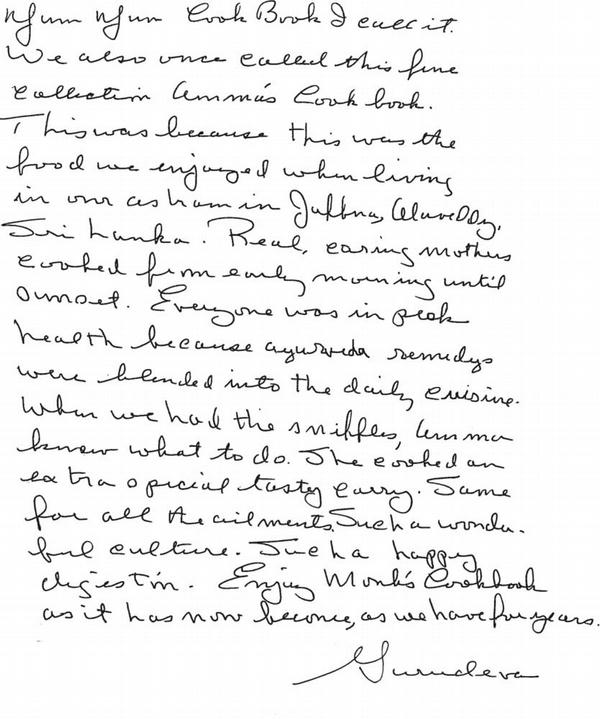 Yum Yum Cook Book I call it.
We also once called this fine
collection Amma's Cook book.
This was because this was the
food we enjoyed when living
in our ashram in Jaffna, Alaveddy,
Sri Lanka. Real, caring mothers
cooked from early morning until
sunset. Everyone was in peak
health because ayurveda remedys
were blended into the daily cuisine.
When we had the sniffles, Amma
knew what to do. She cooked an
extra special tasty curry. Same
for all the ailments. Such a wonder-
ful culture. Such a happy
digestion. Enjoy Monk's Cookbook
as it has now become, as we have for years.
Gurudeva